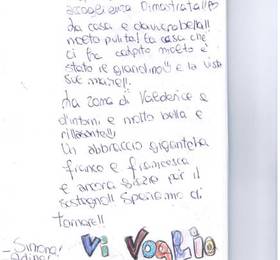 accoglienza dimostrata!!
La casa e davvero bella!!
molto pulita! La casa che
ci ha colpito molto è
stato il giardino!! e la vista
sul mare!!
La zona di Valderice e
d'intorni, e molto bella e
rilassante!!
Un abbraccio gigante
franco e francesca
e ancora grazie per il
Speriamo di
tornare!!
Simona!
VI VOGLIO